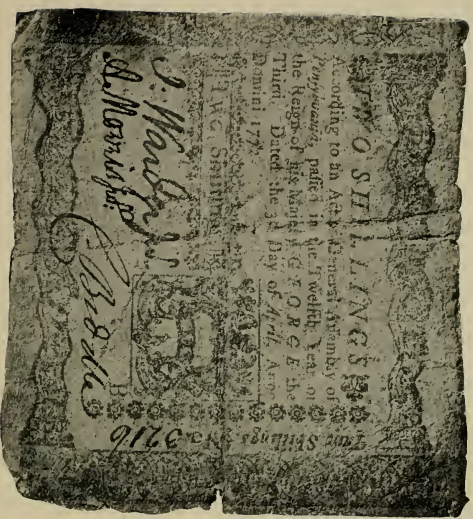 TWO SHILLINGS
According to an Act of General Assembly of
Pennsylvania, passed in the Twelfth Year of
the Reign of his Majesty GEORGE the
Third. Dated the 3d Day of April, Anno
Domini 177
TWO SHILLINGS
B
Two Shillings No 3216